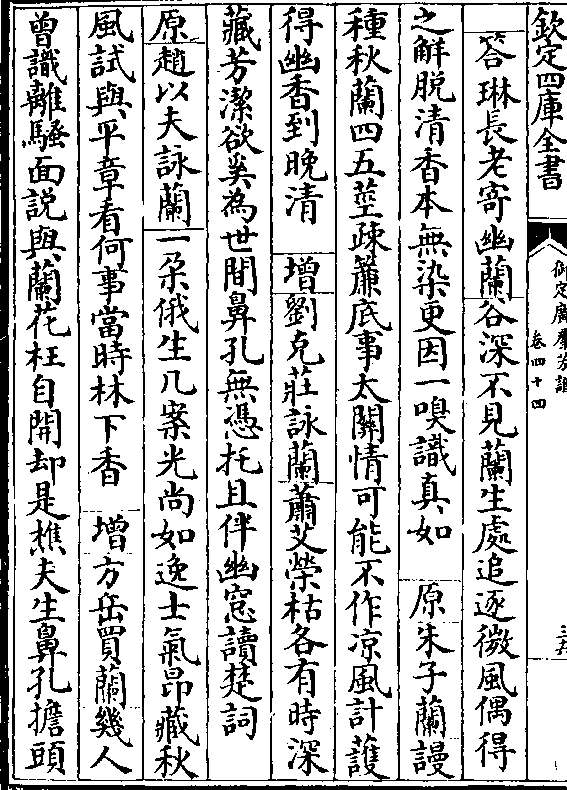 欽定四庫全書
御定廣羣芳譜
卷四十四
答琳長老寄幽蘭谷深不見蘭生處追逐微風偶得
之解脫清香本無染更因一嗅識真如　原朱子蘭謾
種秋蘭四五莖疎簾底事太關情可能不作凉風計護
得幽香到晚清　增劉克莊詠蘭蕭艾榮枯各有時深
藏芳潔欲奚為世間鼻孔無憑托且伴幽窓讀楚詞
原趙以夫詠蘭一朶俄生几案光尚如逸士氣昂藏秋
風試與平章看何事當時林下香　增方岳買蘭幾人
曾識離騷面説與蘭花枉自開却是樵夫生鼻孔擔頭